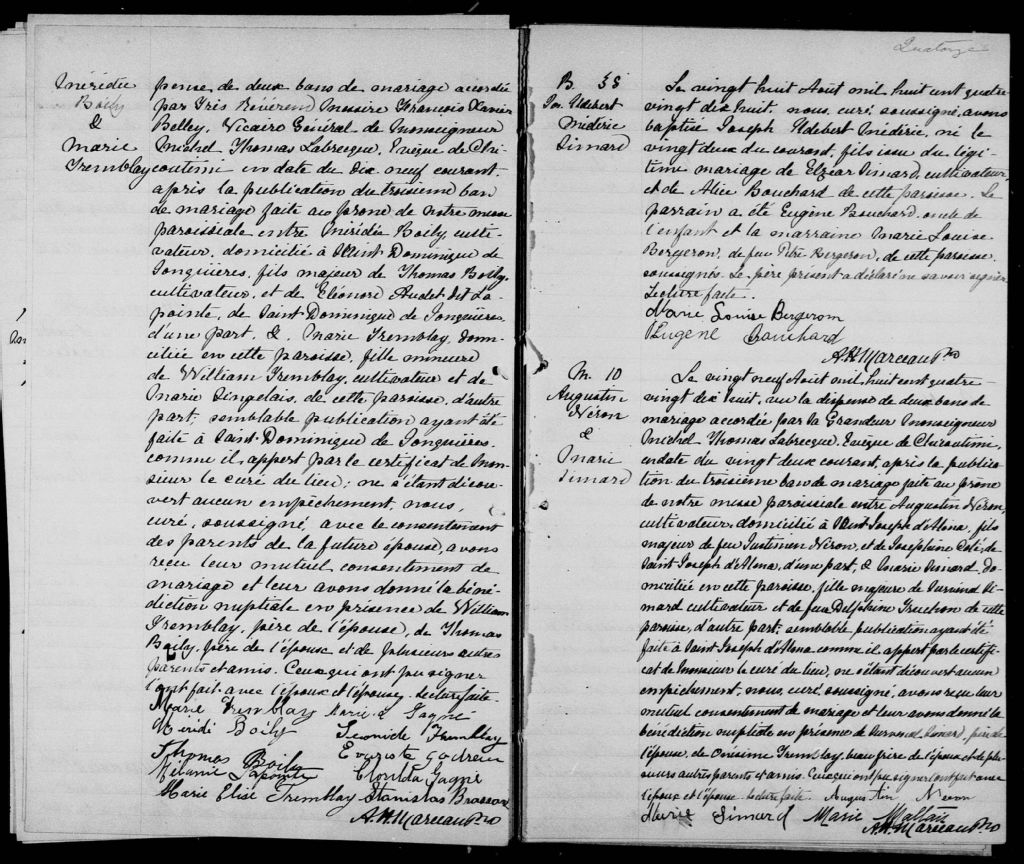 Méridée
Boily
&
Marie
Tremblay
pense, de deux bans de mariage accordée
par Très Révérend Messire François Xavier
Belley, Vicaire Général de Monseigneur
Michel Thomas Labrecque, Evêque de Chi-
coutimi en date du dix neuf courant,
après la publication du troisième ban
de mariage faite au prône de notre messe
paroissiale entre Méridée Boily, culti-
vateur, domicilié à Saint Dominique de
Jonquières, fils majeur de Thomas Boily,
cultivateur, et de Eléonore Audet dit La-
pointe, de Saint Dominique de Jonquières,
d'une part, &, Marie Tremblay, domi-
ciliée en cette paroisse, fille mineure
de William Tremblay, cultivateur et de
Marie Singelais, de cette paroisse, d'autre
part; semblable publication ayant été
faite à Saint-Dominique de Jonquières,
comme il appert par le certificat de Mon-
sieur le curé du lieu; ne s'étant décou-
vert aucun empêchement, nous,
curé, soussigné, avec le consentement
des parents de la future épouse, avons
reçu leur mutuel consentement de
mariage et leur avons donné la béné-
diction nuptiale en présence de William
Tremblay, père de l'épouse, de Thomas
Boily, père de l'époux et de plusieurs autres
parents et amis. Ceux qui ont pu signer
l'ont fait avec l'époux et l'épouse, lecture faite.
Marie Tremblay Marie Gagné
Méridi Boily Léonide Tremblay
Thomas Boily Evariste Godreau
Mélanie Lapointe Clorilda Gagné
Marie Elise Tremblay Stanislas Brassard
A. H. Marceau Ptre
Quatorze
B. 38
Jos. Aldebert
Médéric
Simard
Le vingt huit Août mil huit cent quatre
vingt dix huit, nous, curé, soussigné, avons
baptisé Joseph Aldebert Médéric, né le
vingt deux du courant, fils issu du légi-
time mariage de Elzéar Simard, cultivateur,
et de Alice Bouchard de cette paroisse. Le
parrain a été Eugène Bouchard, oncle de
l'enfant et la marraine Marie Louise
Bergeron, de feu Pitre Bergeron, de cette paroisse,
soussignés. Le père présent a déclaré ne savoir signer.
Lecture faite.
Marie Louise Bergeron
Eugene Bouchard
A. H. Marceau Ptre
M. 10
Augustin
Néron
&
Marie
Simard
Le vingt neuf Août mil huit cent quatre-
vingt dix huit, vu la dispense de deux bans de
mariage accordée par Sa Grandeur Monseigneur
Michel Thomas Labrecque, Evêque de Chicoutimi,
en date du vingt deux courant, après la publica-
tion du troisième ban de mariage faite au prône
de notre messe paroissiale entre Augustin Néron,
cultivateur, domicilié à Saint Joseph d'Alma, fils
majeur de feu Justinien Néron, et de Joséphine Coté, de
Saint Joseph d'Alma, d'une part, & Marie Simard, do-
miciliée en cette paroisse, fille majeure de Si-
mard cultivateur et de feu Delphine Truchon de cette
paroisse, d'autre part; semblable publication ayant été
faite à Saint Joseph d'Alma comme il appert par le certifi-
cat de Monsieur le curé du lieu, ne s'étant découvert aucun
empêchement, nous, curé, soussigné, avons reçu leur
mutuel consentement de mariage et leur avons donné la
bénédiction nuptiale en présence de Simard, père de
l'épouse, de Onésime Tremblay, beau frère de l'époux et de plu-
sieurs autres parents et amis. Ceux qui ont pu signer l'ont fait avec
l'époux et l'épouse lecture faite. Augustin Néron
Marie Simard Marie Maltais
A. H. Marceau Ptre